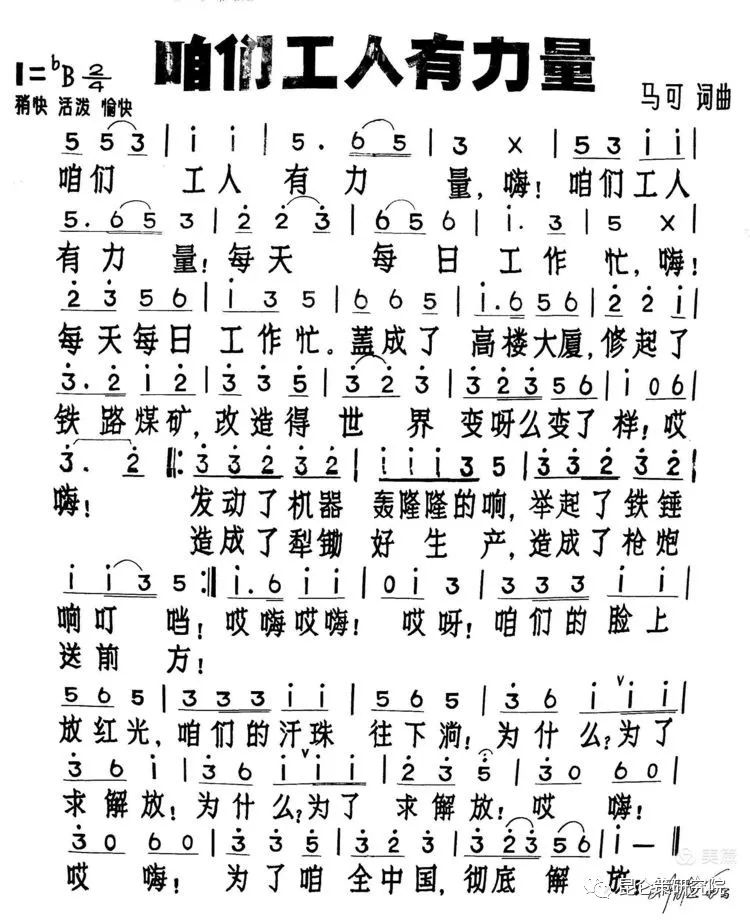 咱们工人有力量
1=ᵇB 2/4
稍快 活泼 愉快
马可 词曲
5 5 3 | i i | 5. 6 5 | 3 X | 5 3 i i |
咱们 工人 有力 量,嗨!咱们工人
5. 6 5 3 | 2 2 3 | 6 5 6 | i. 3 | 5 X |
有力 量!每天 每日 工作 忙,嗨!
2 3 5 6 | i 3 5 | 6 6 5 | i. 6 5 6 | 2 2 i |
每天每日 工作忙。盖成了 高楼大厦,修起了
3. 2 i 2 | 3 3 5 | 3 2 3 | 3 2 3 5 6 | i 0 6 |
铁路煤矿,改造得 世界 变呀么变了 样!哎
3. 2 ‖: 3 3 2 3 2 | i i i 3 5 | 3 3 2 3 2 |
嗨! 发动了机器 轰隆隆的响,举起了铁锤
造成了犁锄 好生产,造成了枪炮
i i 3 5 :‖ i. 6 i i | 0 i 3 | 3 3 3 i i |
响叮 当!哎嗨哎嗨! 哎呀!咱们的脸上
送前 方!
5 6 5 | 3 3 3 i i | 5 6 5 | 3 6 i ᵛi i |
放红光,咱们的汗珠 往下淌!为什么?为了
3 6 i | 3 6 i ᵛi i | 2 3 5 | 3 0 6 0 |
求解放!为什么?为了 求解放!哎 嗨!
3 0 6 0 | 3 3 5 | 3 2 3 | 3 2 3 5 6 | i — ‖
哎 嗨! 为了咱 全中国,彻底解 放
美篇
昆仑策研究院